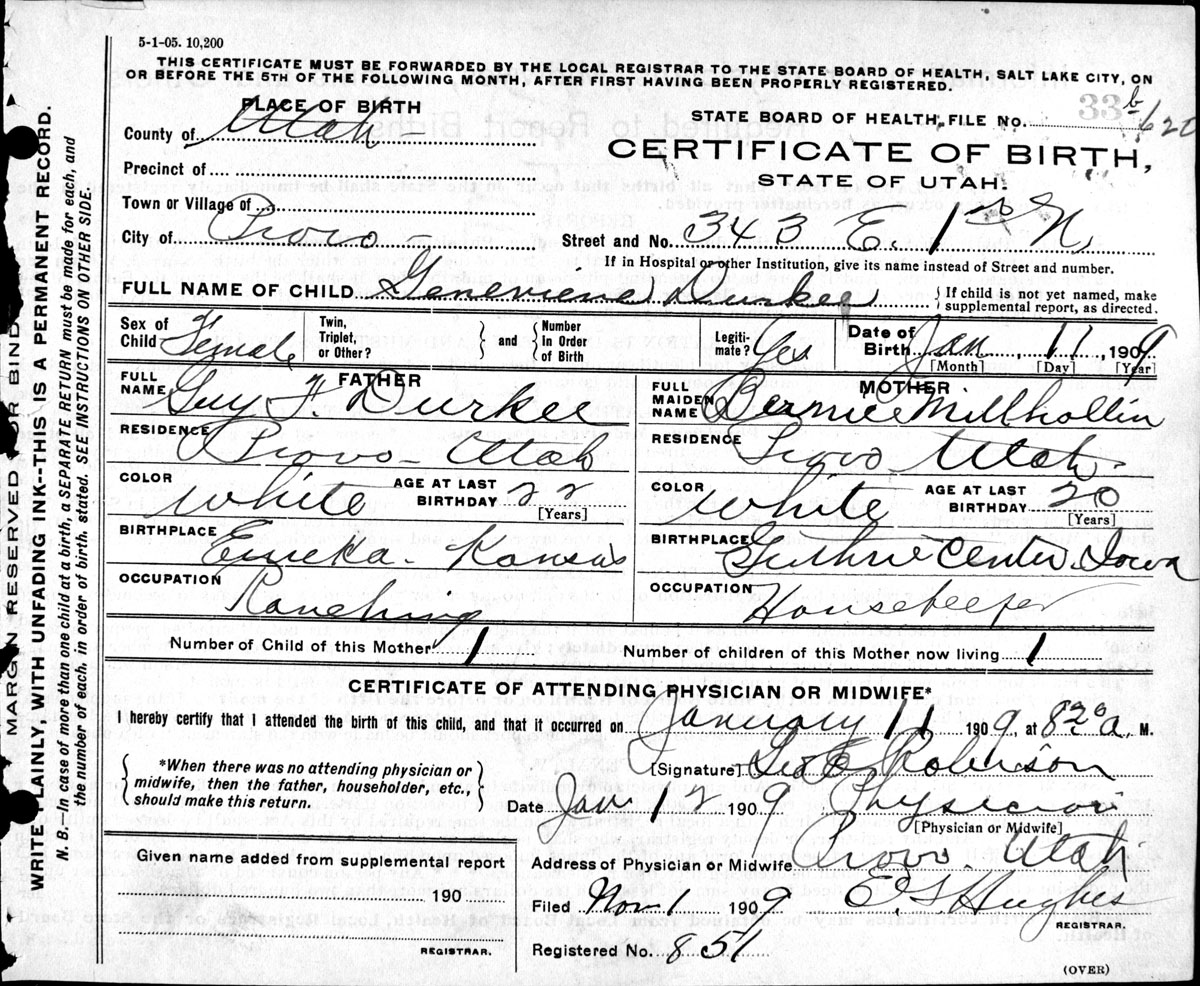 5-1-05. 10,200
THIS CERTIFICATE MUST BE FORWARDED BY THE LOCAL REGISTRAR TO THE STATE BOARD OF HEALTH, SALT LAKE CITY, ON
OR BEFORE THE 5TH OF THE FOLLOWING MONTH, AFTER FIRST HAVING BEEN PROPERLY REGISTERED.
PLACE OF BIRTH
STATE BOARD OF HEALTH, FILE NO. 33 b 620
County of Utah
CERTIFICATE OF BIRTH,
Precinct of
STATE OF UTAH.
Town or Village of
City of Provo
Street and No. 343 E. 1st N.
If in Hospital or other Institution, give its name instead of Street and number.
FULL NAME OF CHILD Genevieve Durkee { If child is not yet named, make supplemental report, as directed.
Sex of Child Female Twin, Triplet, or Other? } and { Number In Order of Birth Legiti-mate? Yes Date of Birth Jan 11, 1909
[Month] [Day] [Year]
FATHER
FULL NAME Guy F. Durkee
RESIDENCE Provo Utah
COLOR White AGE AT LAST BIRTHDAY 22 [Years]
BIRTHPLACE Eureka - Kansas
OCCUPATION Ranching
MOTHER
FULL MAIDEN NAME Bernice Millhollin
RESIDENCE Provo Utah
COLOR White AGE AT LAST BIRTHDAY 20 [Years]
BIRTHPLACE Guthrie Center Iowa
OCCUPATION Housekeeper
Number of Child of this Mother 1 Number of children of this Mother now living 1
CERTIFICATE OF ATTENDING PHYSICIAN OR MIDWIFE*
I hereby certify that I attended the birth of this child, and that it occurred on January 11 1909, at 8 20 a. M.
{ *When there was no attending physician or midwife, then the father, householder, etc., should make this return. }
[Signature] Robinson
Date Jan 12 1909 Physician
[Physician or Midwife]
Given name added from supplemental report
190
REGISTRAR.
Address of Physician or Midwife Provo Utah
Filed Nov 1 1909 Hughes
REGISTRAR.
Registered No. 851
(OVER)
MARGIN RESERVED FOR BIND
WRITE PLAINLY, WITH UNFADING INK--THIS IS A PERMANENT RECORD.
N. B.—In case of more than one child at a birth, a SEPARATE RETURN must be made for each, and
the number of each, in order of birth, stated. SEE INSTRUCTIONS ON OTHER SIDE.